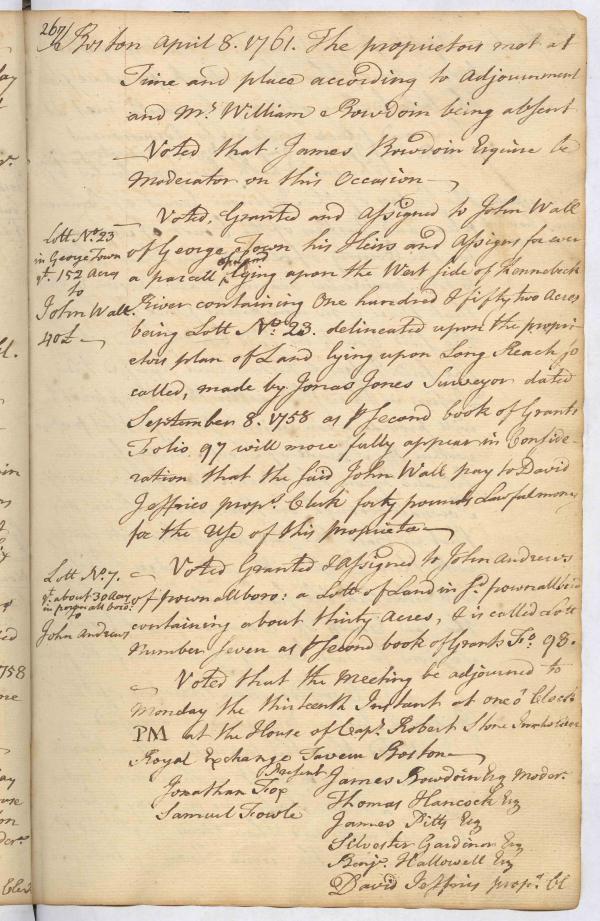 267/
Boston April 8. 1761. The proprietors met at
Time and place according to Adjournment
and Mr. William Bowdoin being absent
Voted that James Bowdoin Esquire be
Moderator on this Occasion
Voted, Granted and Assigned to John Wall
of George Town his Heirs and Assigns for ever
a parcell of Land lying upon the West side of Kennebeck
River containing One hundred & fifty two Acres
being Lott No. 23. delineated upon the propri-
etors plan of Land lying upon Long Reach so
called, made by Jonas Jones Surveyor dated
September 8. 1758 as pr Second book of Grants
Folio 97 will more fully appear in Conside-
ration that the said John Wall pay to David
Jeffries propr. Clerk forty pounds Lawful money
for the Use of this propriete
Lott No. 23
in George Town
qt. 152 Acres
to
John Wall.
40£
Voted Granted & Assigned to John Andrews
of pownallboro: a Lott of Land in sd. pownallboro
containing about thirty Acres, & is called Lott
Number Seven as pr Second book of Grants Fo. 98.
Lott No. 7.
qt. about 30 Acres
in pownallboro:
to
John Andrews
Voted that the Meeting be adjourned to
Monday the thirteenth Instant at one o'Clock
PM at the House of Capt. Robert Stone Innholder
Royal Exchange Tavern Boston
Present
Jonathan Fox
Samuel Fowle
James Bowdoin Esq Moder.
Thomas Hancock Esq
James Pitts Esq
Silvester Gardiner Esq
Benjn. Hallowell Esq
David Jeffries propr. Cl